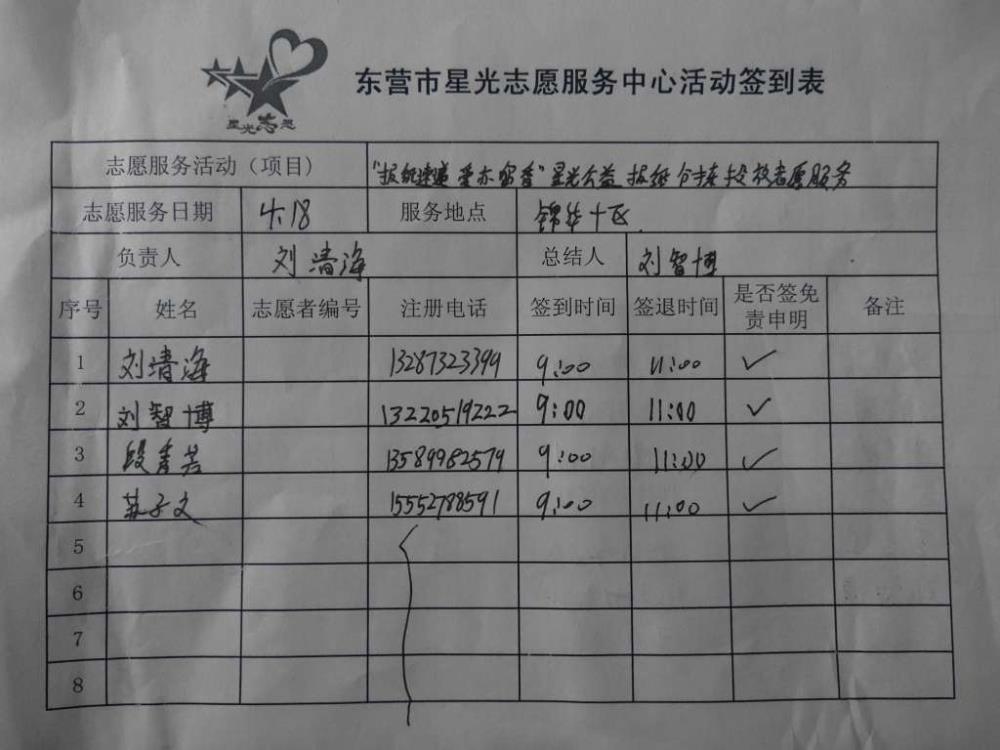 星光志愿
东营市星光志愿服务中心活动签到表
志愿服务活动（项目） "报纸速递 爱亦留香"星光公益 报纸分拣投放志愿服务
志愿服务日期 4.18 服务地点 锦华十区
负责人 刘清海 总结人 刘智博
序号 姓名 志愿者编号 注册电话 签到时间 签退时间 是否签免责申明 备注
1 刘清海 13287323399 9:00 11:00 ✓
2 刘智博 13220519222 9:00 11:00 ✓
3 段青 13589982579 9:00 11:00 ✓
4 苏子文 15552788591 9:00 11:00 ✓
5
6
7
8